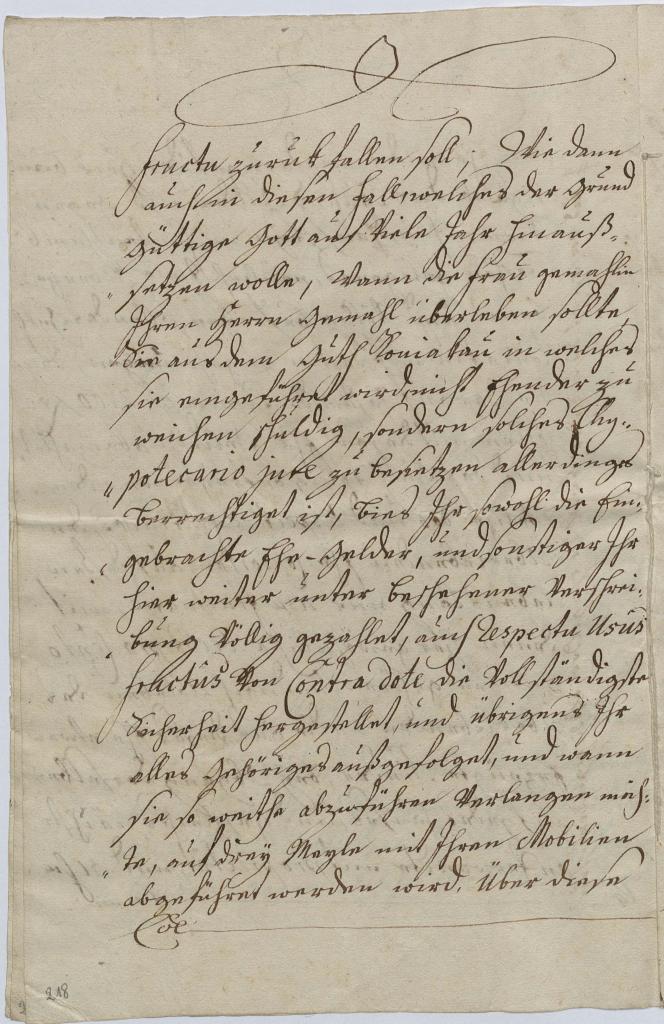 fructu zuruk fallen soll; Wie dann
auch in diesen fall, welches der Grund
Güttige Gott auf Viele Jahr hinauß-
setzen wolle, Wann die frau gemahlin
Ihren Herrn Gemahl überleben sollte,
Sie aus dem Guth Koniakau in welches
sie eingeführet wird, nicht Ehender zu
weichen schuldig, sondern solches Hÿ-
potecario jure zu besietzen allerdings
berrechtiget ist, bies Ihr sowohl die Ein-
gebrachte Ehe-Gelder, und sonstiger Ihr
hier weiter unter beschehener Verschrei-
bung Völlig gezahlet, auch respectu Usus
fructus Von Contra dote die Vollständigste
Sicherheit hergestellet, und übrigens Ihr
alles Gehöriges außgefolget, und wann
sie so weithe abzuführen Verlangen möch-
te, auf dreÿ Meyle mit Ihren Mobilien
abgeführet werden wird. Über diese
218